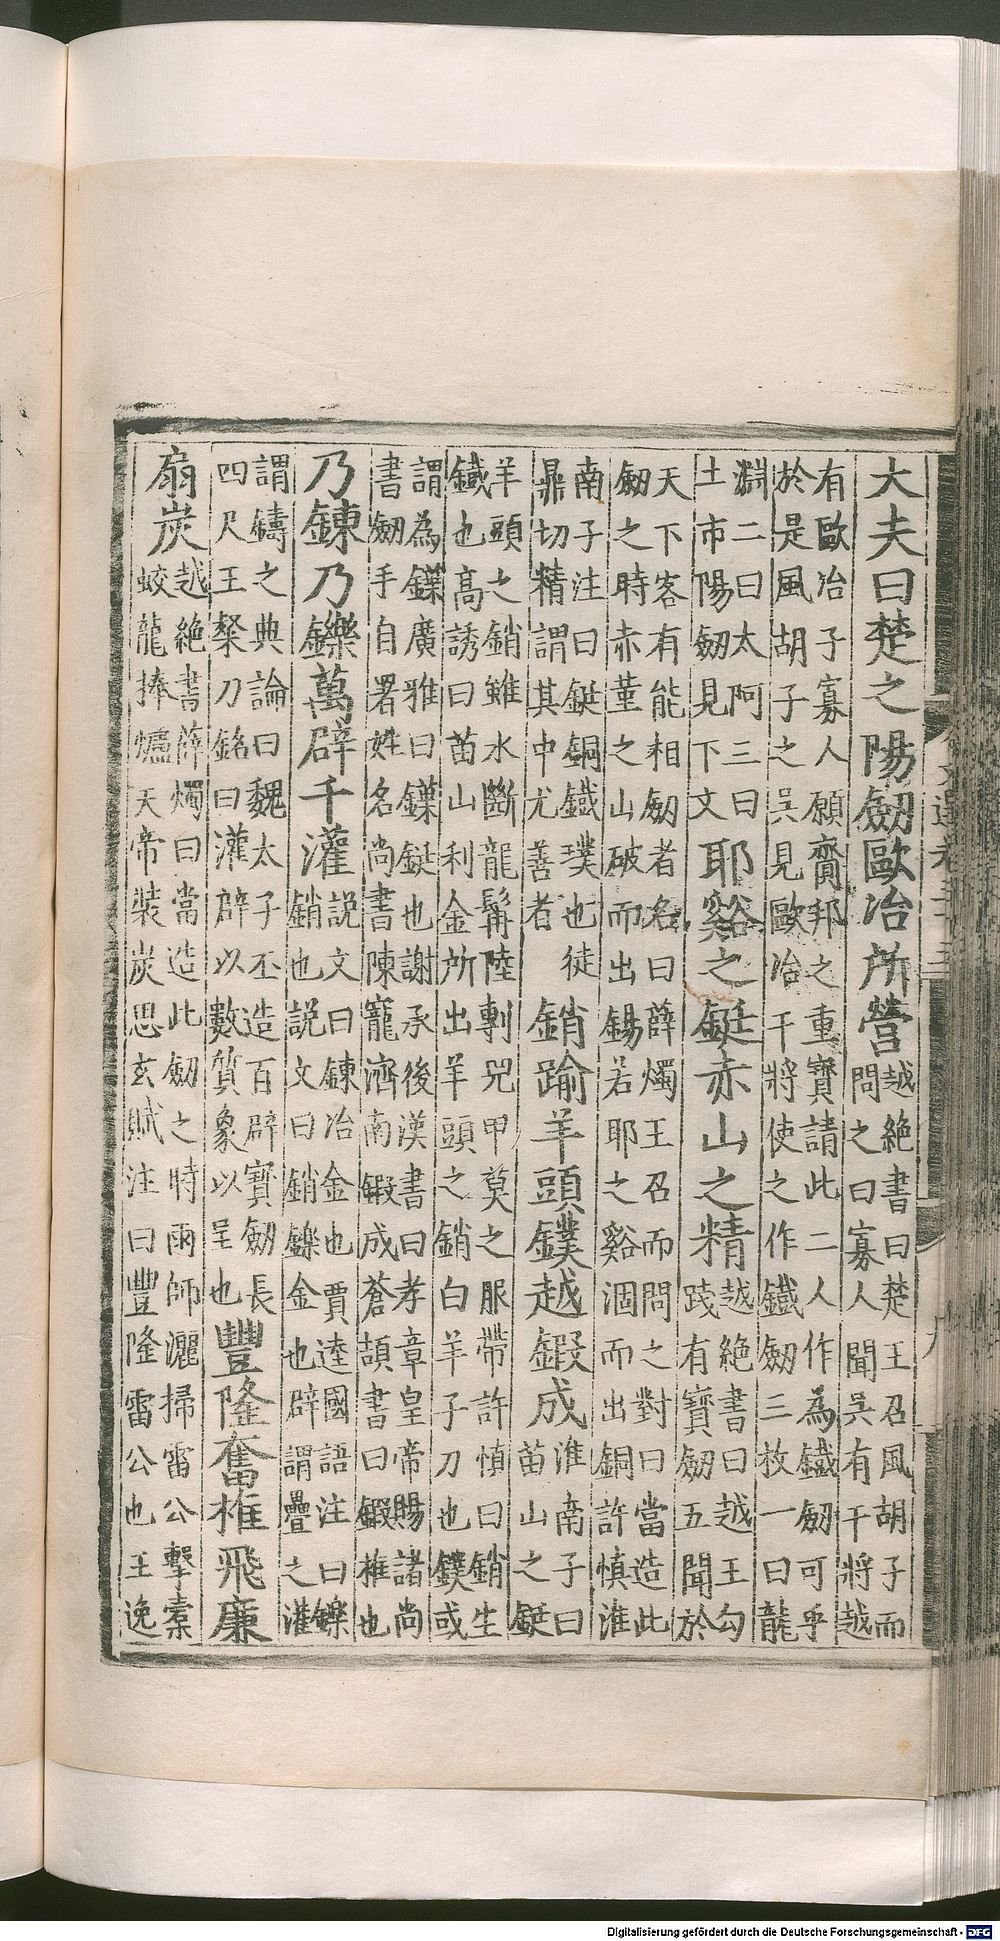 大夫曰楚之陽劔歐冶所營
越絶書曰楚王召風胡子而
問之曰寡人聞吳有干將越
有歐冶子寡人願齎邦之重寶請此二人作為鐵劔可乎
於是風胡子之吳見歐冶干將使之作鐵劔三枚一曰龍
淵二曰太阿三曰
土市陽劔見下文
耶谿之鋌赤山之精
越絶書曰越王勾
踐有寶劔五聞於
天下客有能相劔者名曰薛燭王召而問之對曰當造此
劔之時赤堇之山破而出錫若耶之谿涸而出銅許慎淮
南子注曰鋌銅鐵璞也徒
鼎切精謂其中尤善者
銷踰羊頭鏷越鍛成
淮南子曰
苗山之鋌
羊頭之銷雖水斷龍髯陸剸兕甲莫之服帶許慎曰銷生
鐵也高誘曰苗山利金所出羊頭之銷白羊子刀也鏷或
謂為鏷廣雅曰鏷鋌也謝承後漢書曰孝章皇帝賜諸尚
書劔手自署姓名尚書陳寵濟南鍛成蒼頡書曰鍛椎也
乃鍊乃鑠萬辟千灌
說文曰鍊冶金也賈逵國語注曰鑠
銷也説文曰銷鑠金也辟謂疊之灌
謂鑄之典論曰魏太子丕造百辟寶劔長
四尺王粲刀銘曰灌辟以數質象以呈也
豐隆奮椎飛廉
扇炭
越絶書薛燭曰當造此劔之時雨師灑掃雷公擊橐
蛟龍捧爐天帝裝炭思玄賦注曰豐隆雷公也王逸
Digitalisierung gefördert durch die Deutsche Forschungsgemeinschaft - DFG